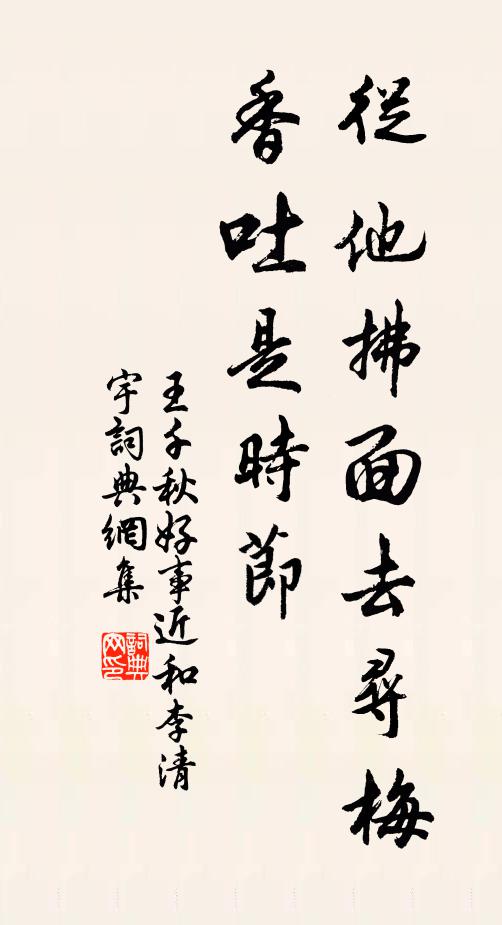 從他拂面去尋梅
香吐是時節
王千秋好事近和李清
宇詞典網集
詞典網印